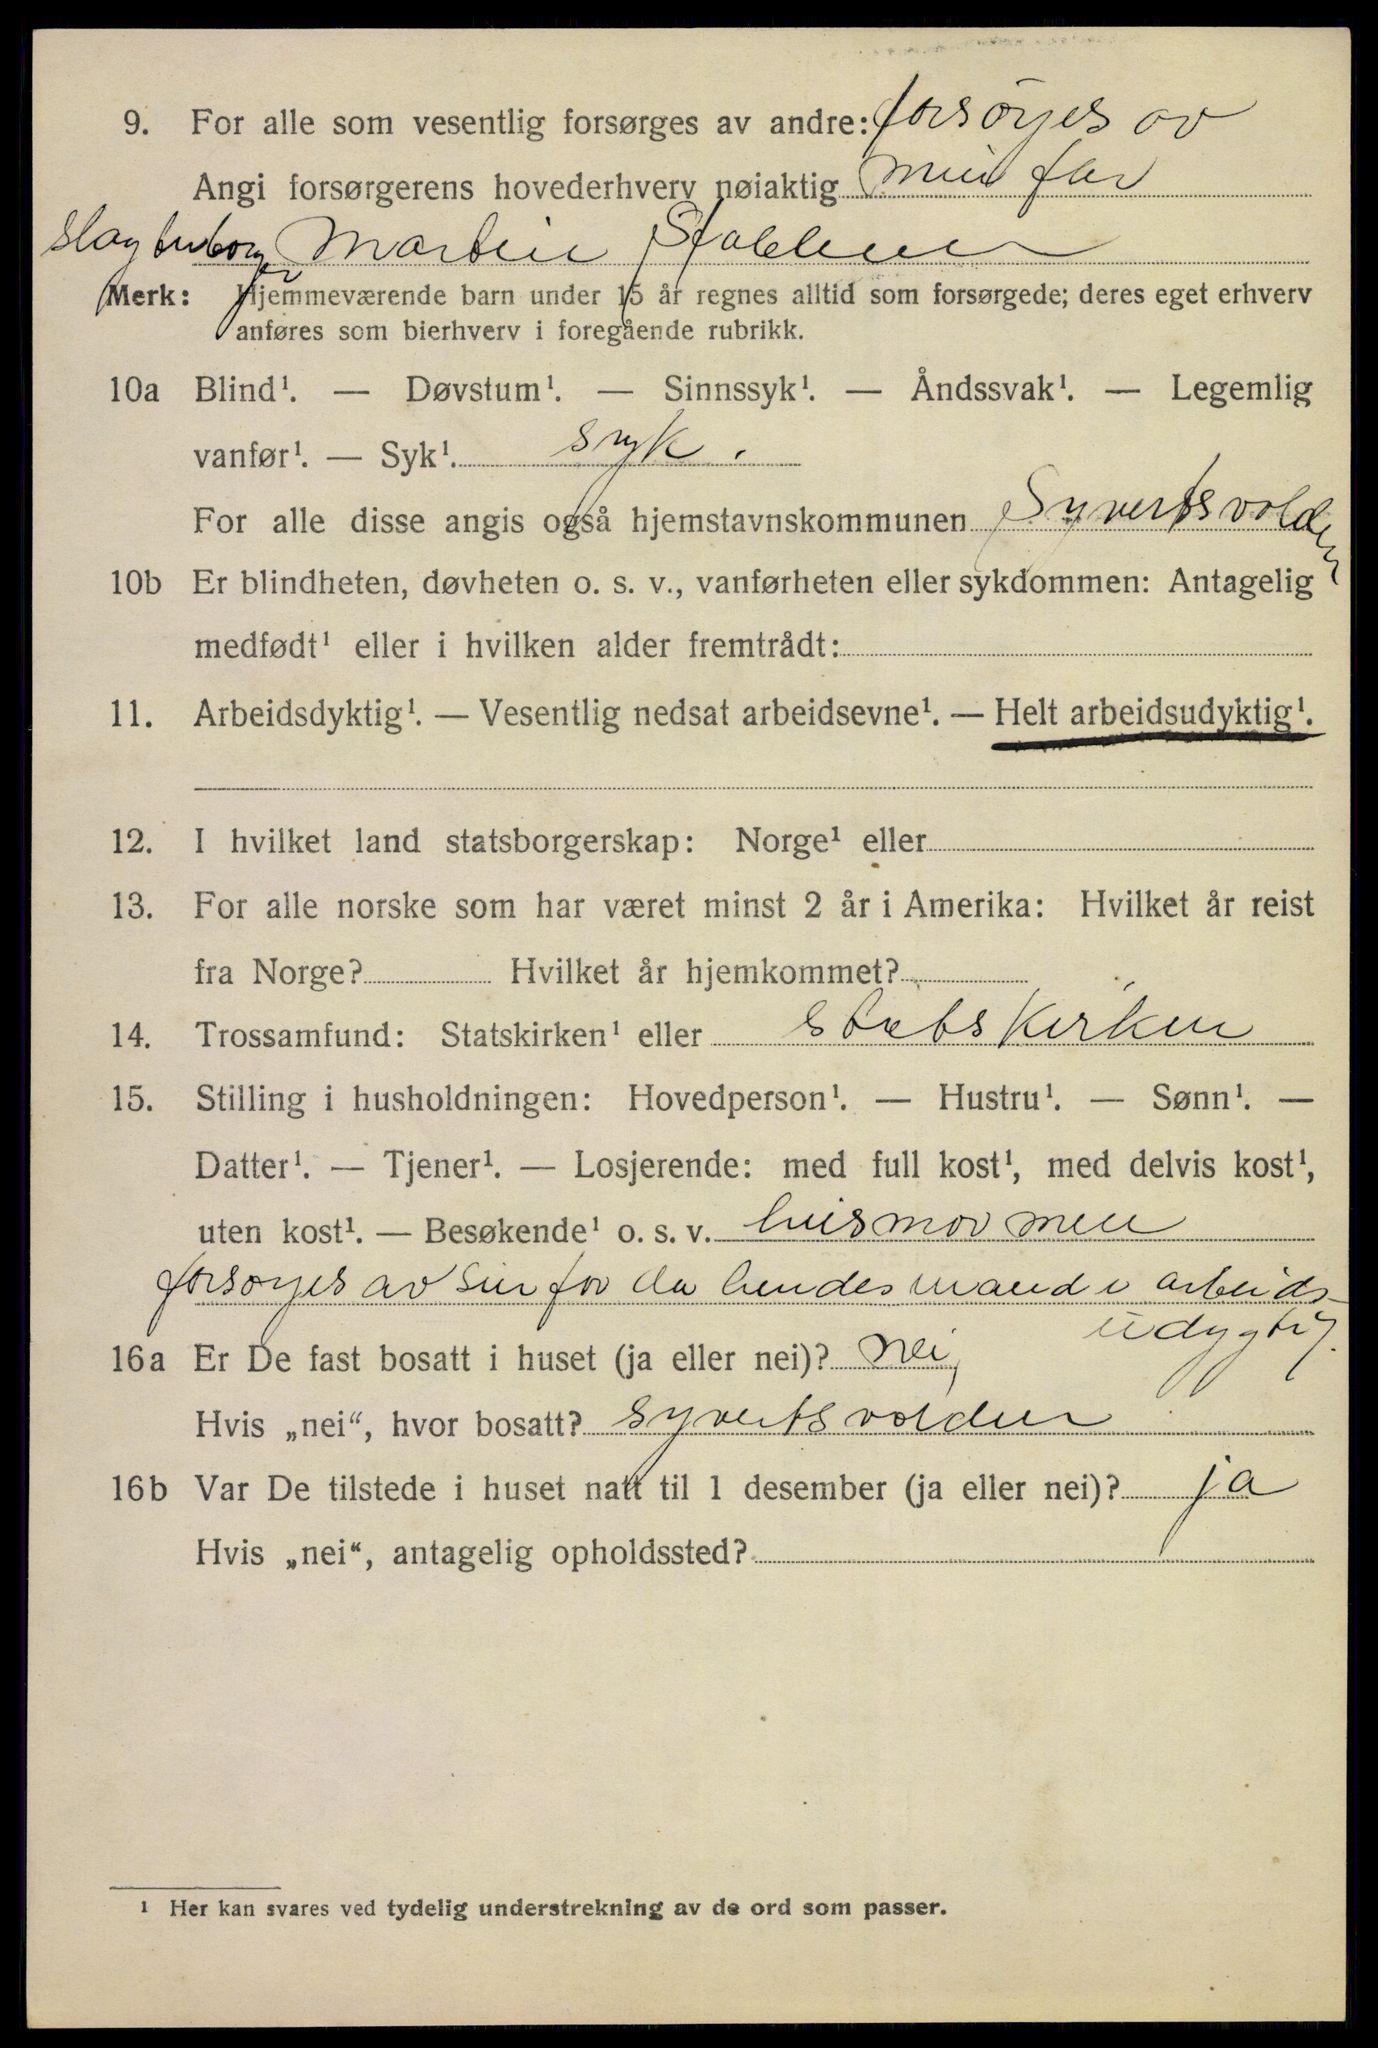 9. For alle som vesentlig forsørges av andre: forsörjes av
Angi forsørgerens hovederhverv nøiaktig min far
Martin Stabbum
Merk: Hjemmeværende barn under 15 år regnes alltid som forsørgede; deres eget erhverv
anføres som bierhverv i foregående rubrikk.
10a Blind¹. — Døvstum¹. — Sinnssyk¹. — Åndssvak¹. — Legemlig
vanfør¹. — Syk¹. syk.
For alle disse angis også hjemstavnskommunen Syvertsvolden
10b Er blindheten, døvheten o. s. v., vanførheten eller sykdommen: Antagelig
medfødt¹ eller i hvilken alder fremtrådt:
11. Arbeidsdyktig¹. — Vesentlig nedsat arbeidsevne¹. — Helt arbeidsudyktig¹.
12. I hvilket land statsborgerskap: Norge¹ eller
13. For alle norske som har været minst 2 år i Amerika: Hvilket år reist
fra Norge? Hvilket år hjemkommet?
14. Trossamfund: Statskirken¹ eller statskirken
15. Stilling i husholdningen: Hovedperson¹. — Hustru¹. — Sønn¹. —
Datter¹. — Tjener¹. — Losjerende: med full kost¹, med delvis kost¹,
uten kost¹. — Besøkende¹ o. s. v. husmor men
forsørjes av sin far da hendes mand e arbeids-
udygtig.
16a Er De fast bosatt i huset (ja eller nei)? nei,
Hvis „nei“, hvor bosatt? syvertsvolden
16b Var De tilstede i huset natt til 1 desember (ja eller nei)? ja
Hvis „nei“, antagelig opholdssted?
¹ Her kan svares ved tydelig understrekning av de ord som passer.